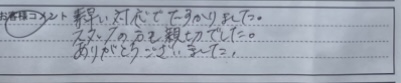 お客様コメント
早い対応でたすかりました。
スタッフの方も親切でした。
ありがとうございました。